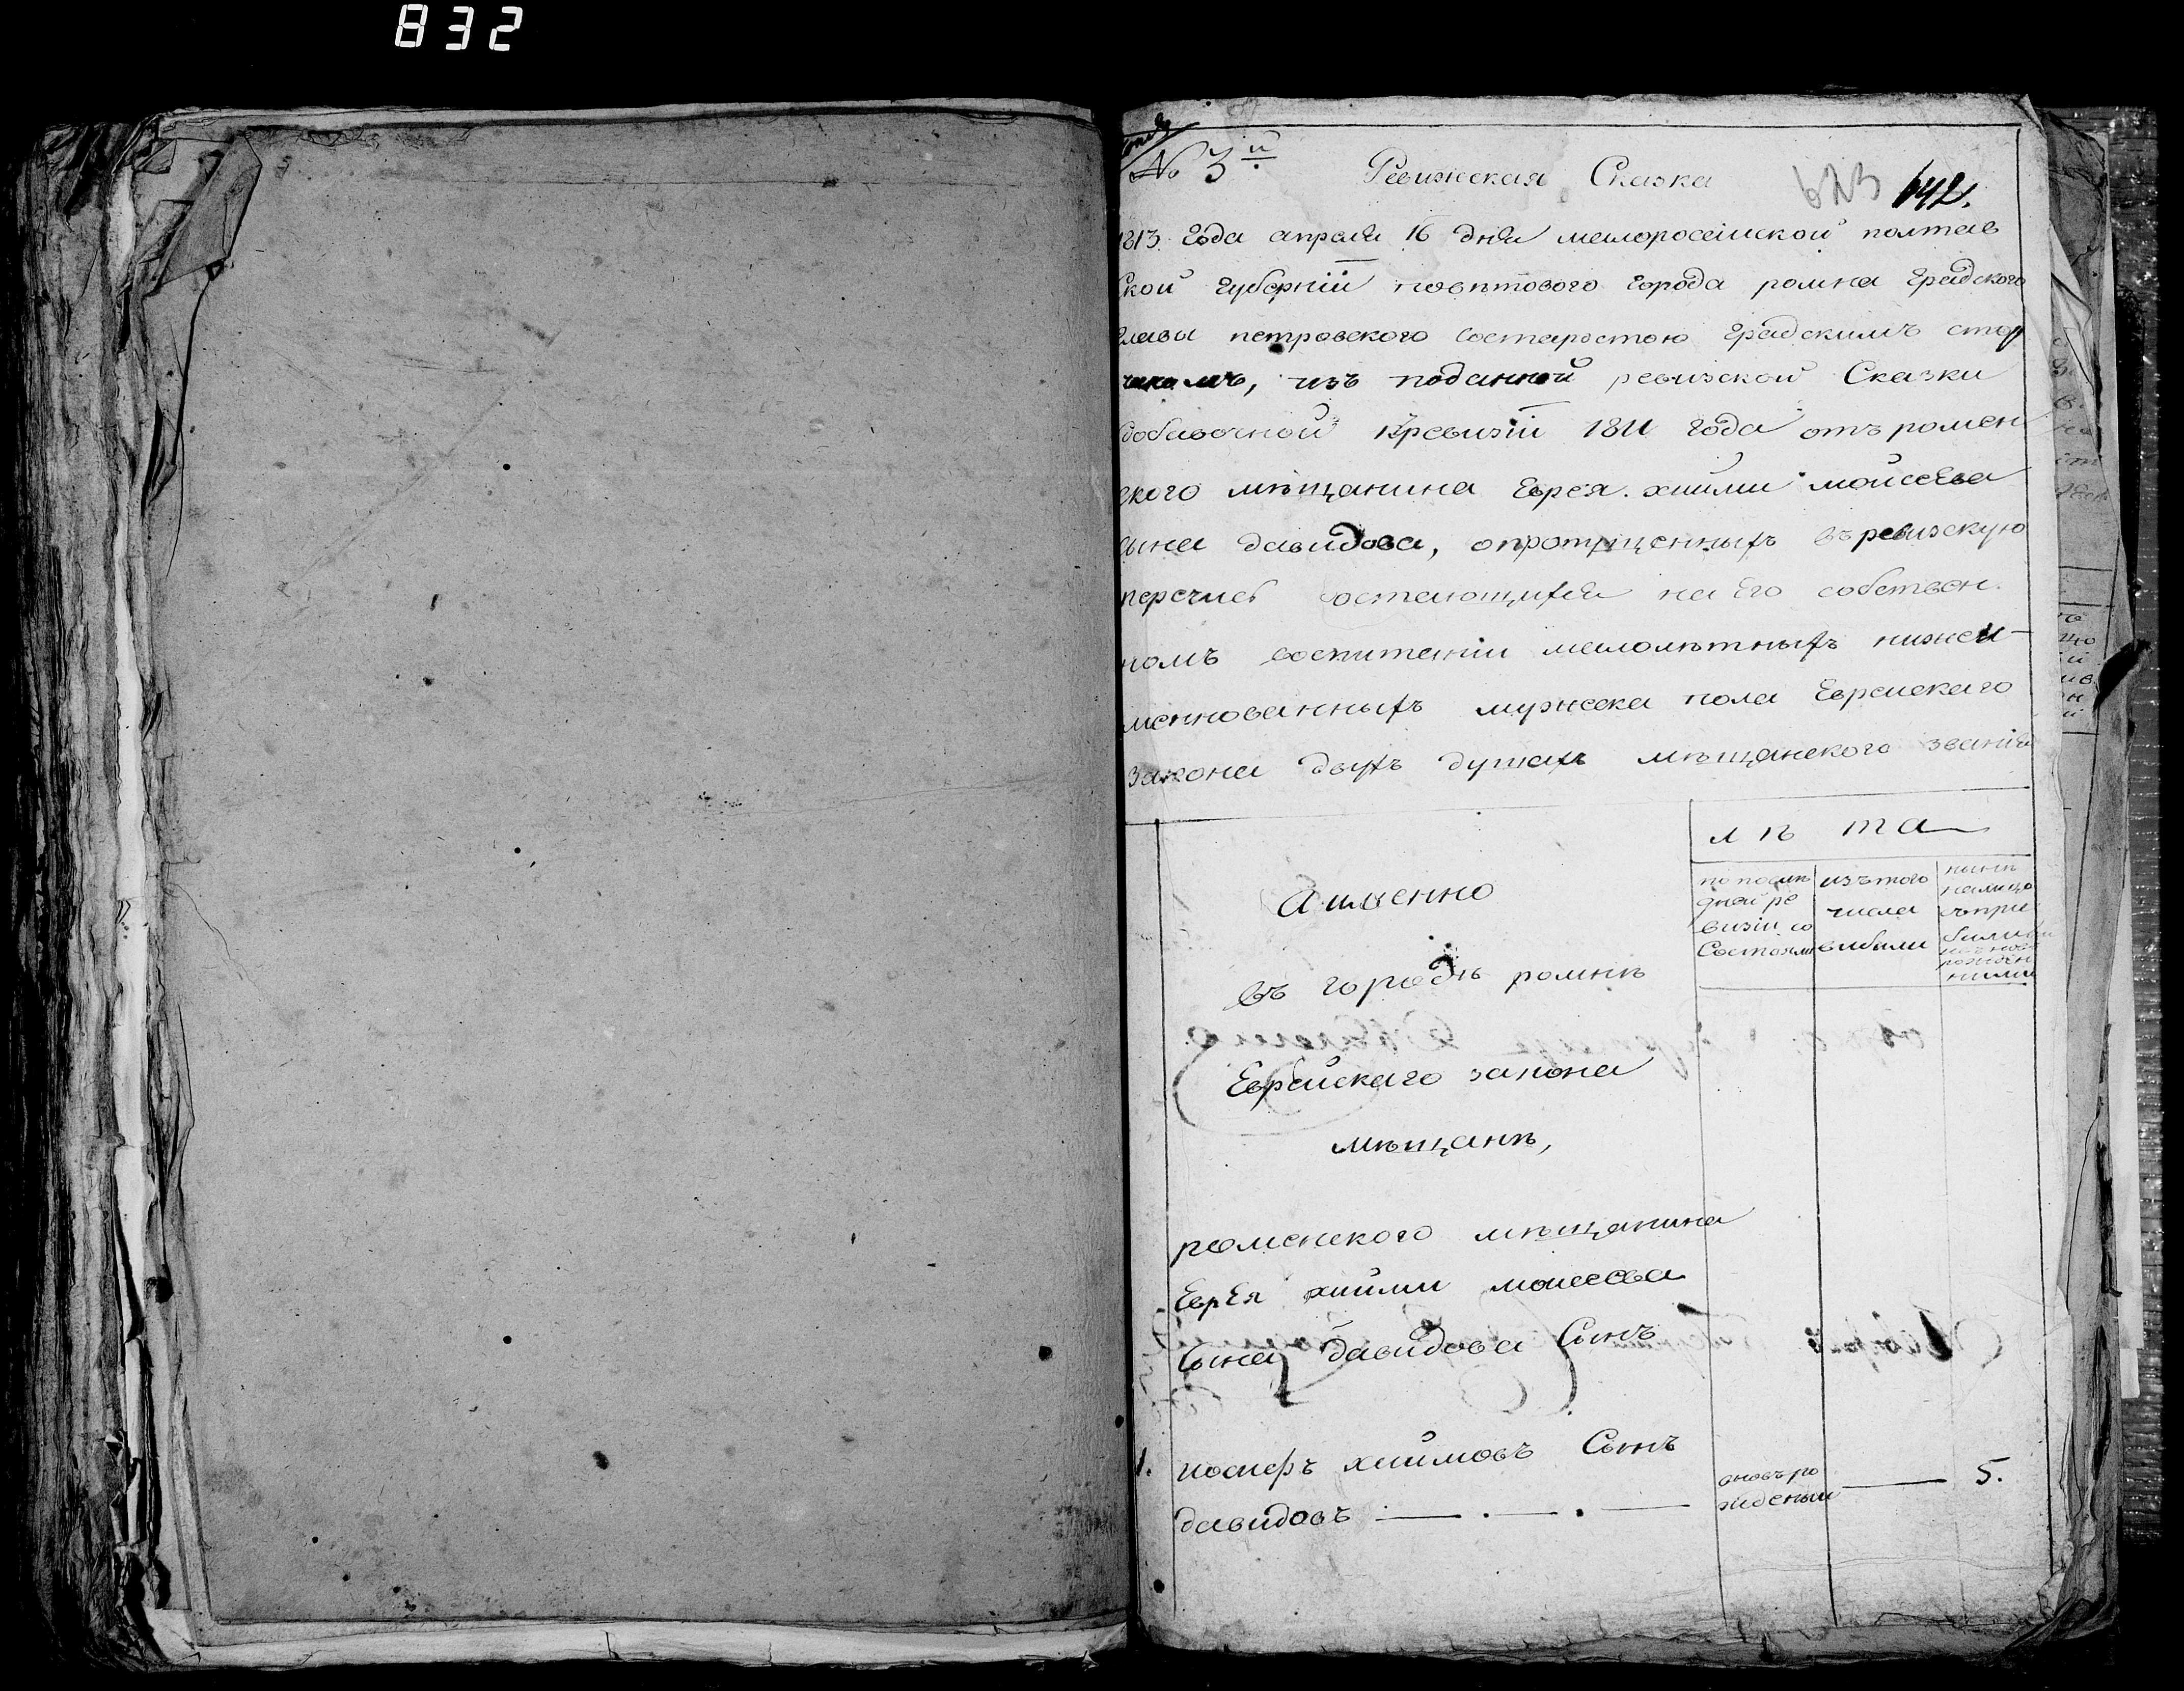 832
№ 3й
Ревижская Сказка
623 642.
1813 года апреля 16 дня малоросеииской полтав
ской губернїи повѣтового города ромна градского
главы петровского состаростою градскимъ
изъ поданной ревизской Сказки
добавочной кревизїи 1811 года отъ ромен
ского мѣщанина Еврея хаими мойсеева
сына давидова, опропущенныхъ въ ревизскую
перечисл остающихся на Его собствен.
номъ воспитанїи малолѣтныхъ нижеи-
менованныхъ мужеска пола Евреискаго
закона двухъ душахъ мѣщанского званїя
лѣта
по послѣ
дней ре
визїи со
Состояли
изъ того
числа
выбыли
нынѣ
налицо
съпри
былими
рожден
ними
Аименно
въ городѣ ромнѣ
Еврейскаго закона
мѣщанѣ,
роменского мѣщанина
Еврея хаими моисеева
Сына давидова Сынъ
1. иосифъ хаимовъ Сынъ
давидовъ вновь ро
жденый 5.